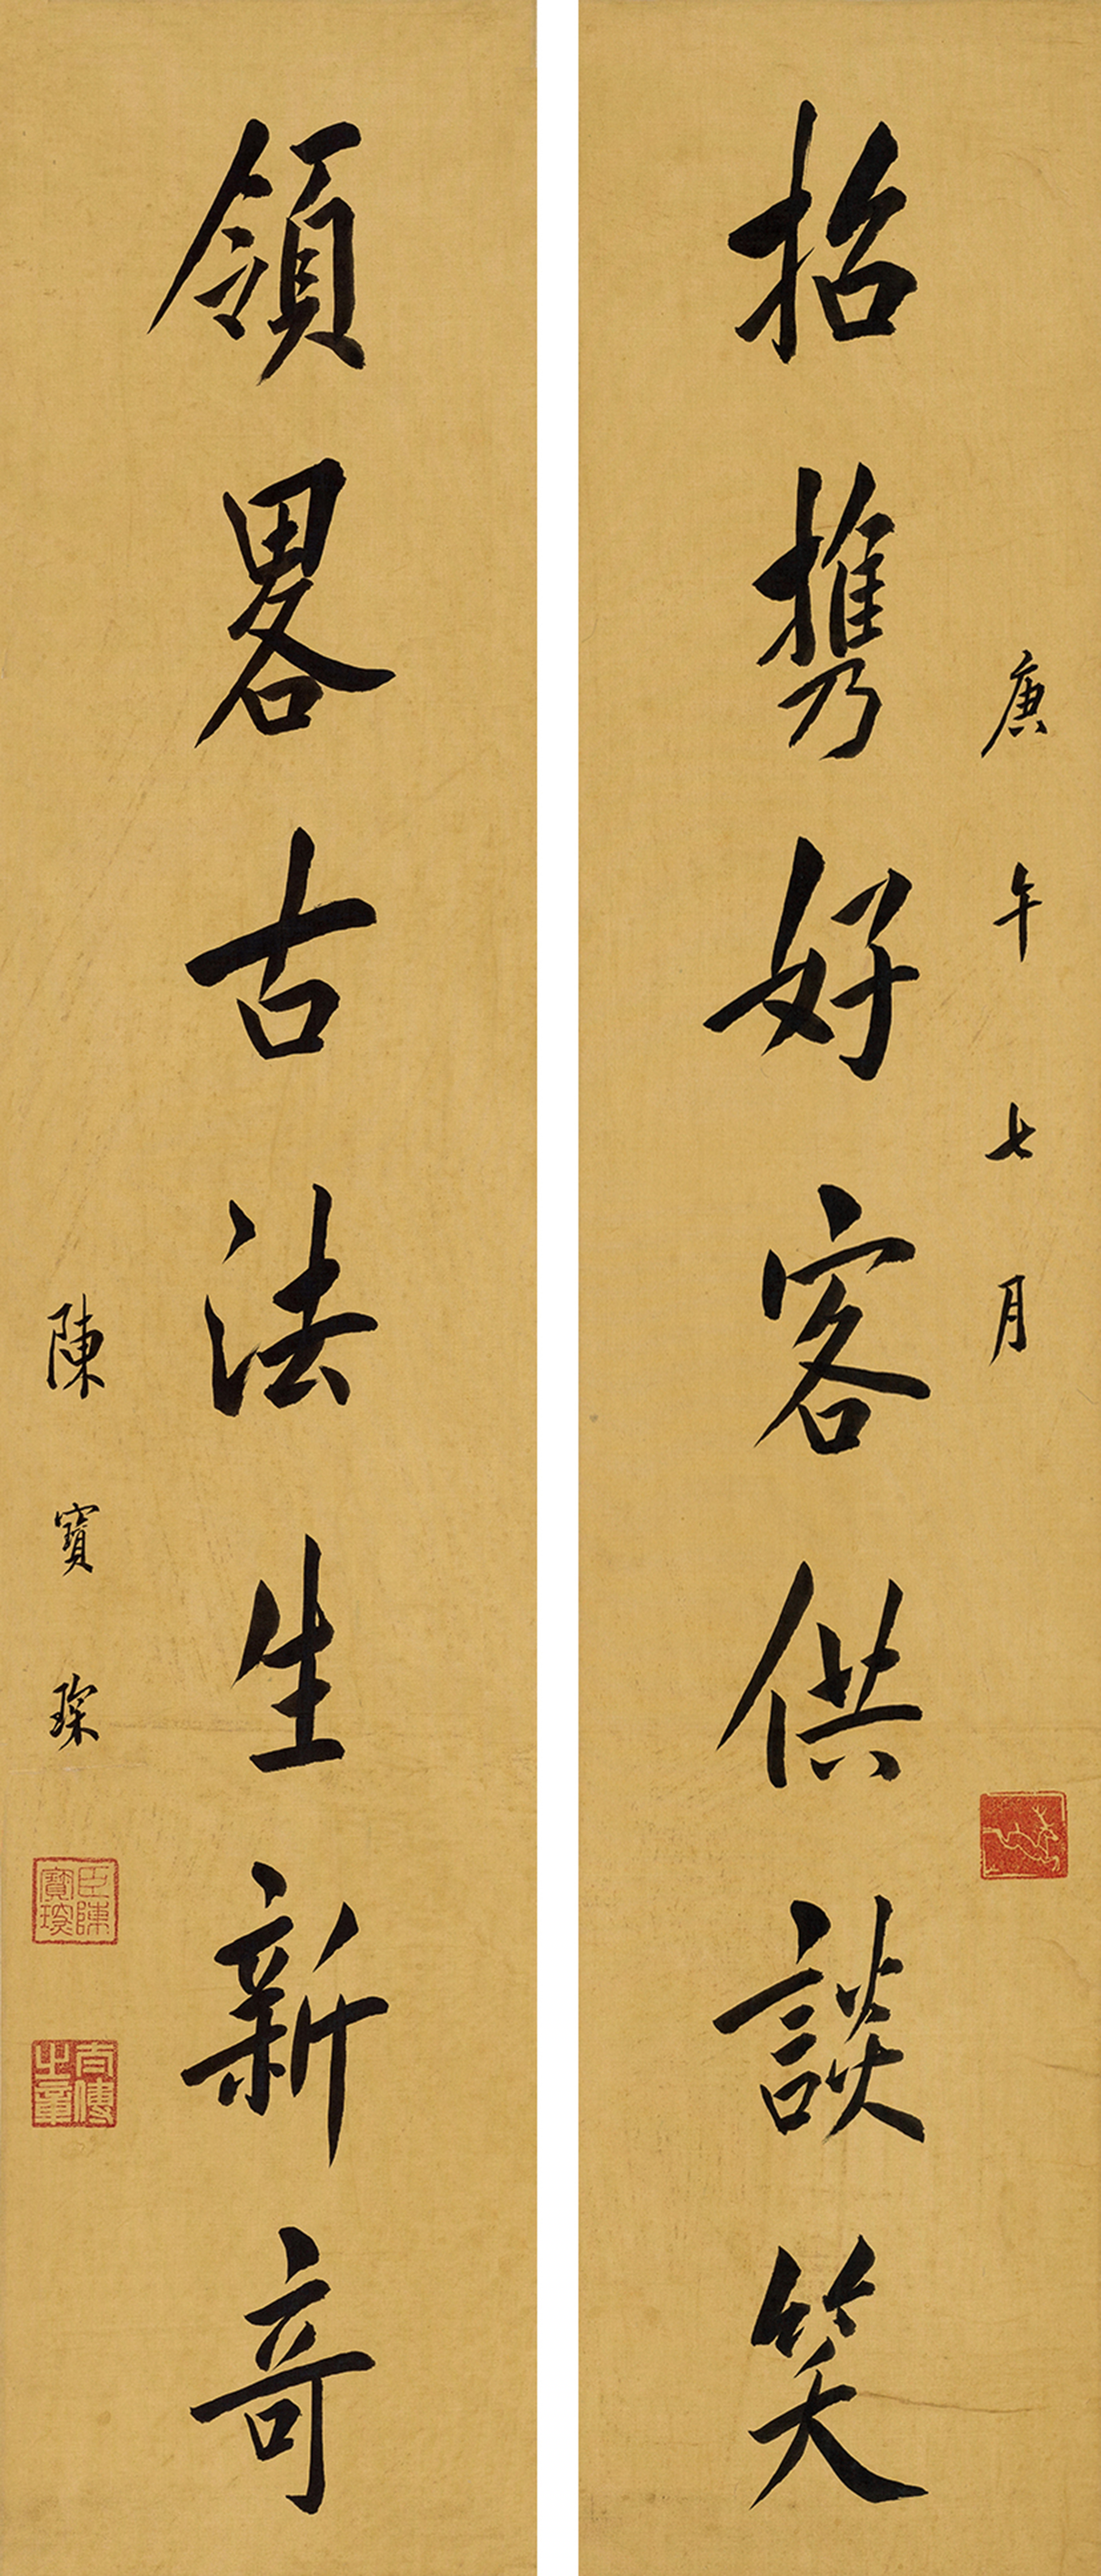 庚午七月
招攜好客供談笑
領畧古法生新奇
陳寶琛
臣陳寶琛
太傅之章